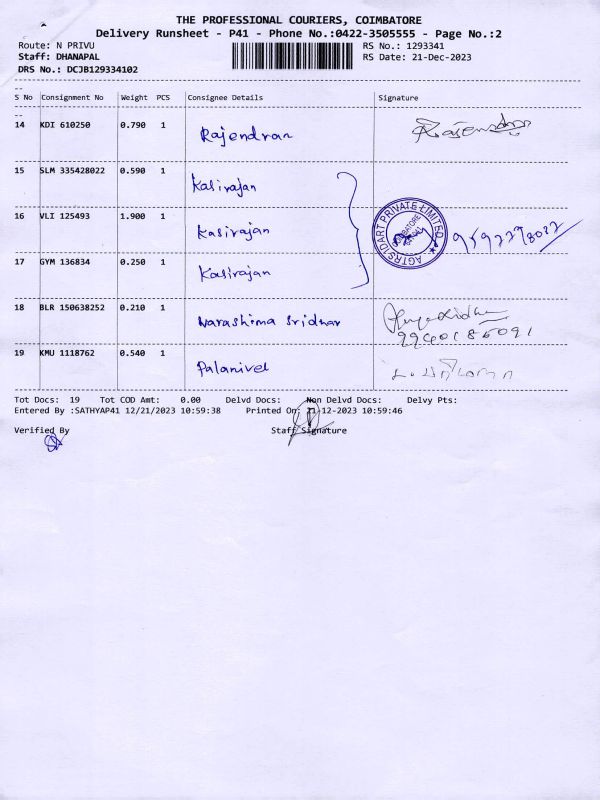 THE PROFESSIONAL COURIERS, COIMBATORE
Delivery Runsheet - P41 - Phone No.:0422-3505555 - Page No.:2
Route: N PRIVU
RS No.: 1293341
Staff: DHANAPAL
RS Date: 21-Dec-2023
DRS No.: DCJB129334102
S No Consignment No Weight PCS Consignee Details Signature
14 KDI 610250 0.790 1 Rajendran
15 SLM 335428022 0.590 1 Kasirajan
16 VLI 125493 1.900 1 Kasirajan
AGTRSIDART PRIVATE LIMITED
COIMBATORE
17 GYM 136834 0.250 1 Kasirajan
18 BLR 150638252 0.210 1 Narashima Sridhar
19 KMU 1118762 0.540 1 Palanivel
Tot Docs: 19 Tot COD Amt: 0.00 Delvd Docs: Non Delvd Docs: Delvy Pts:
Entered By :SATHYAP41 12/21/2023 10:59:38 Printed On: 21-12-2023 10:59:46
Verified By Staff Signature